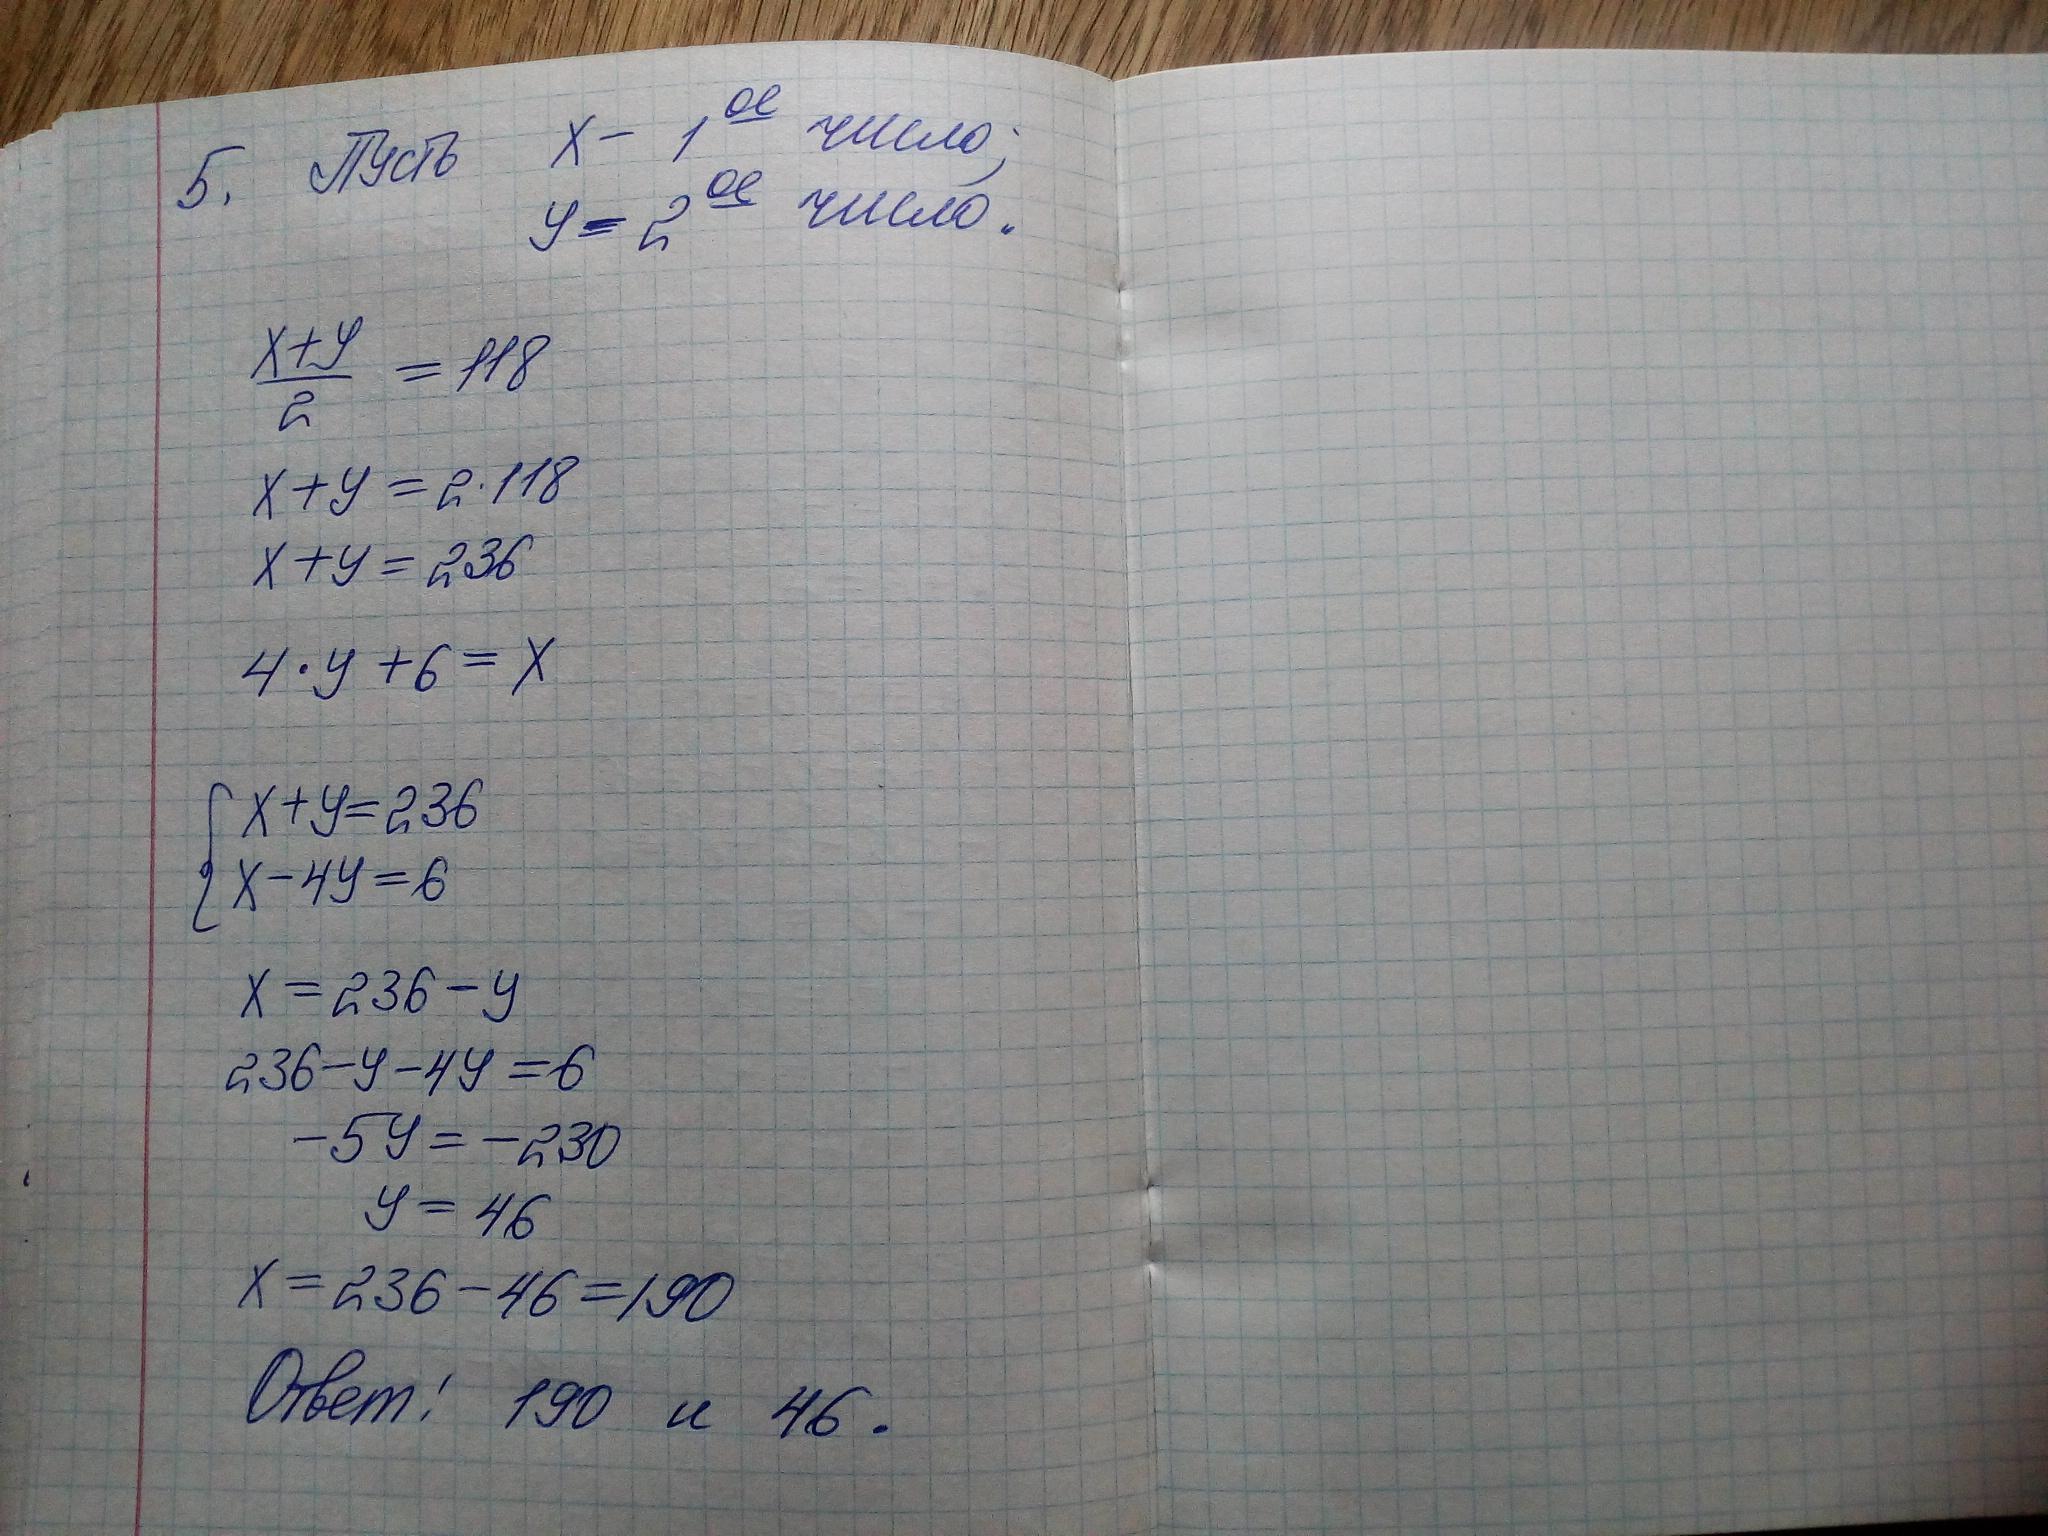 5. Пусть x - 1ое число;
y - 2ое число.
x+y/2 = 118
x+y = 2·118
x+y = 236
4·y+6 = x
{x+y=236
x-4y=6
x = 236-y
236-y-4y=6
-5y = -230
y = 46
x = 236-46 = 190
Ответ: 190 и 46.